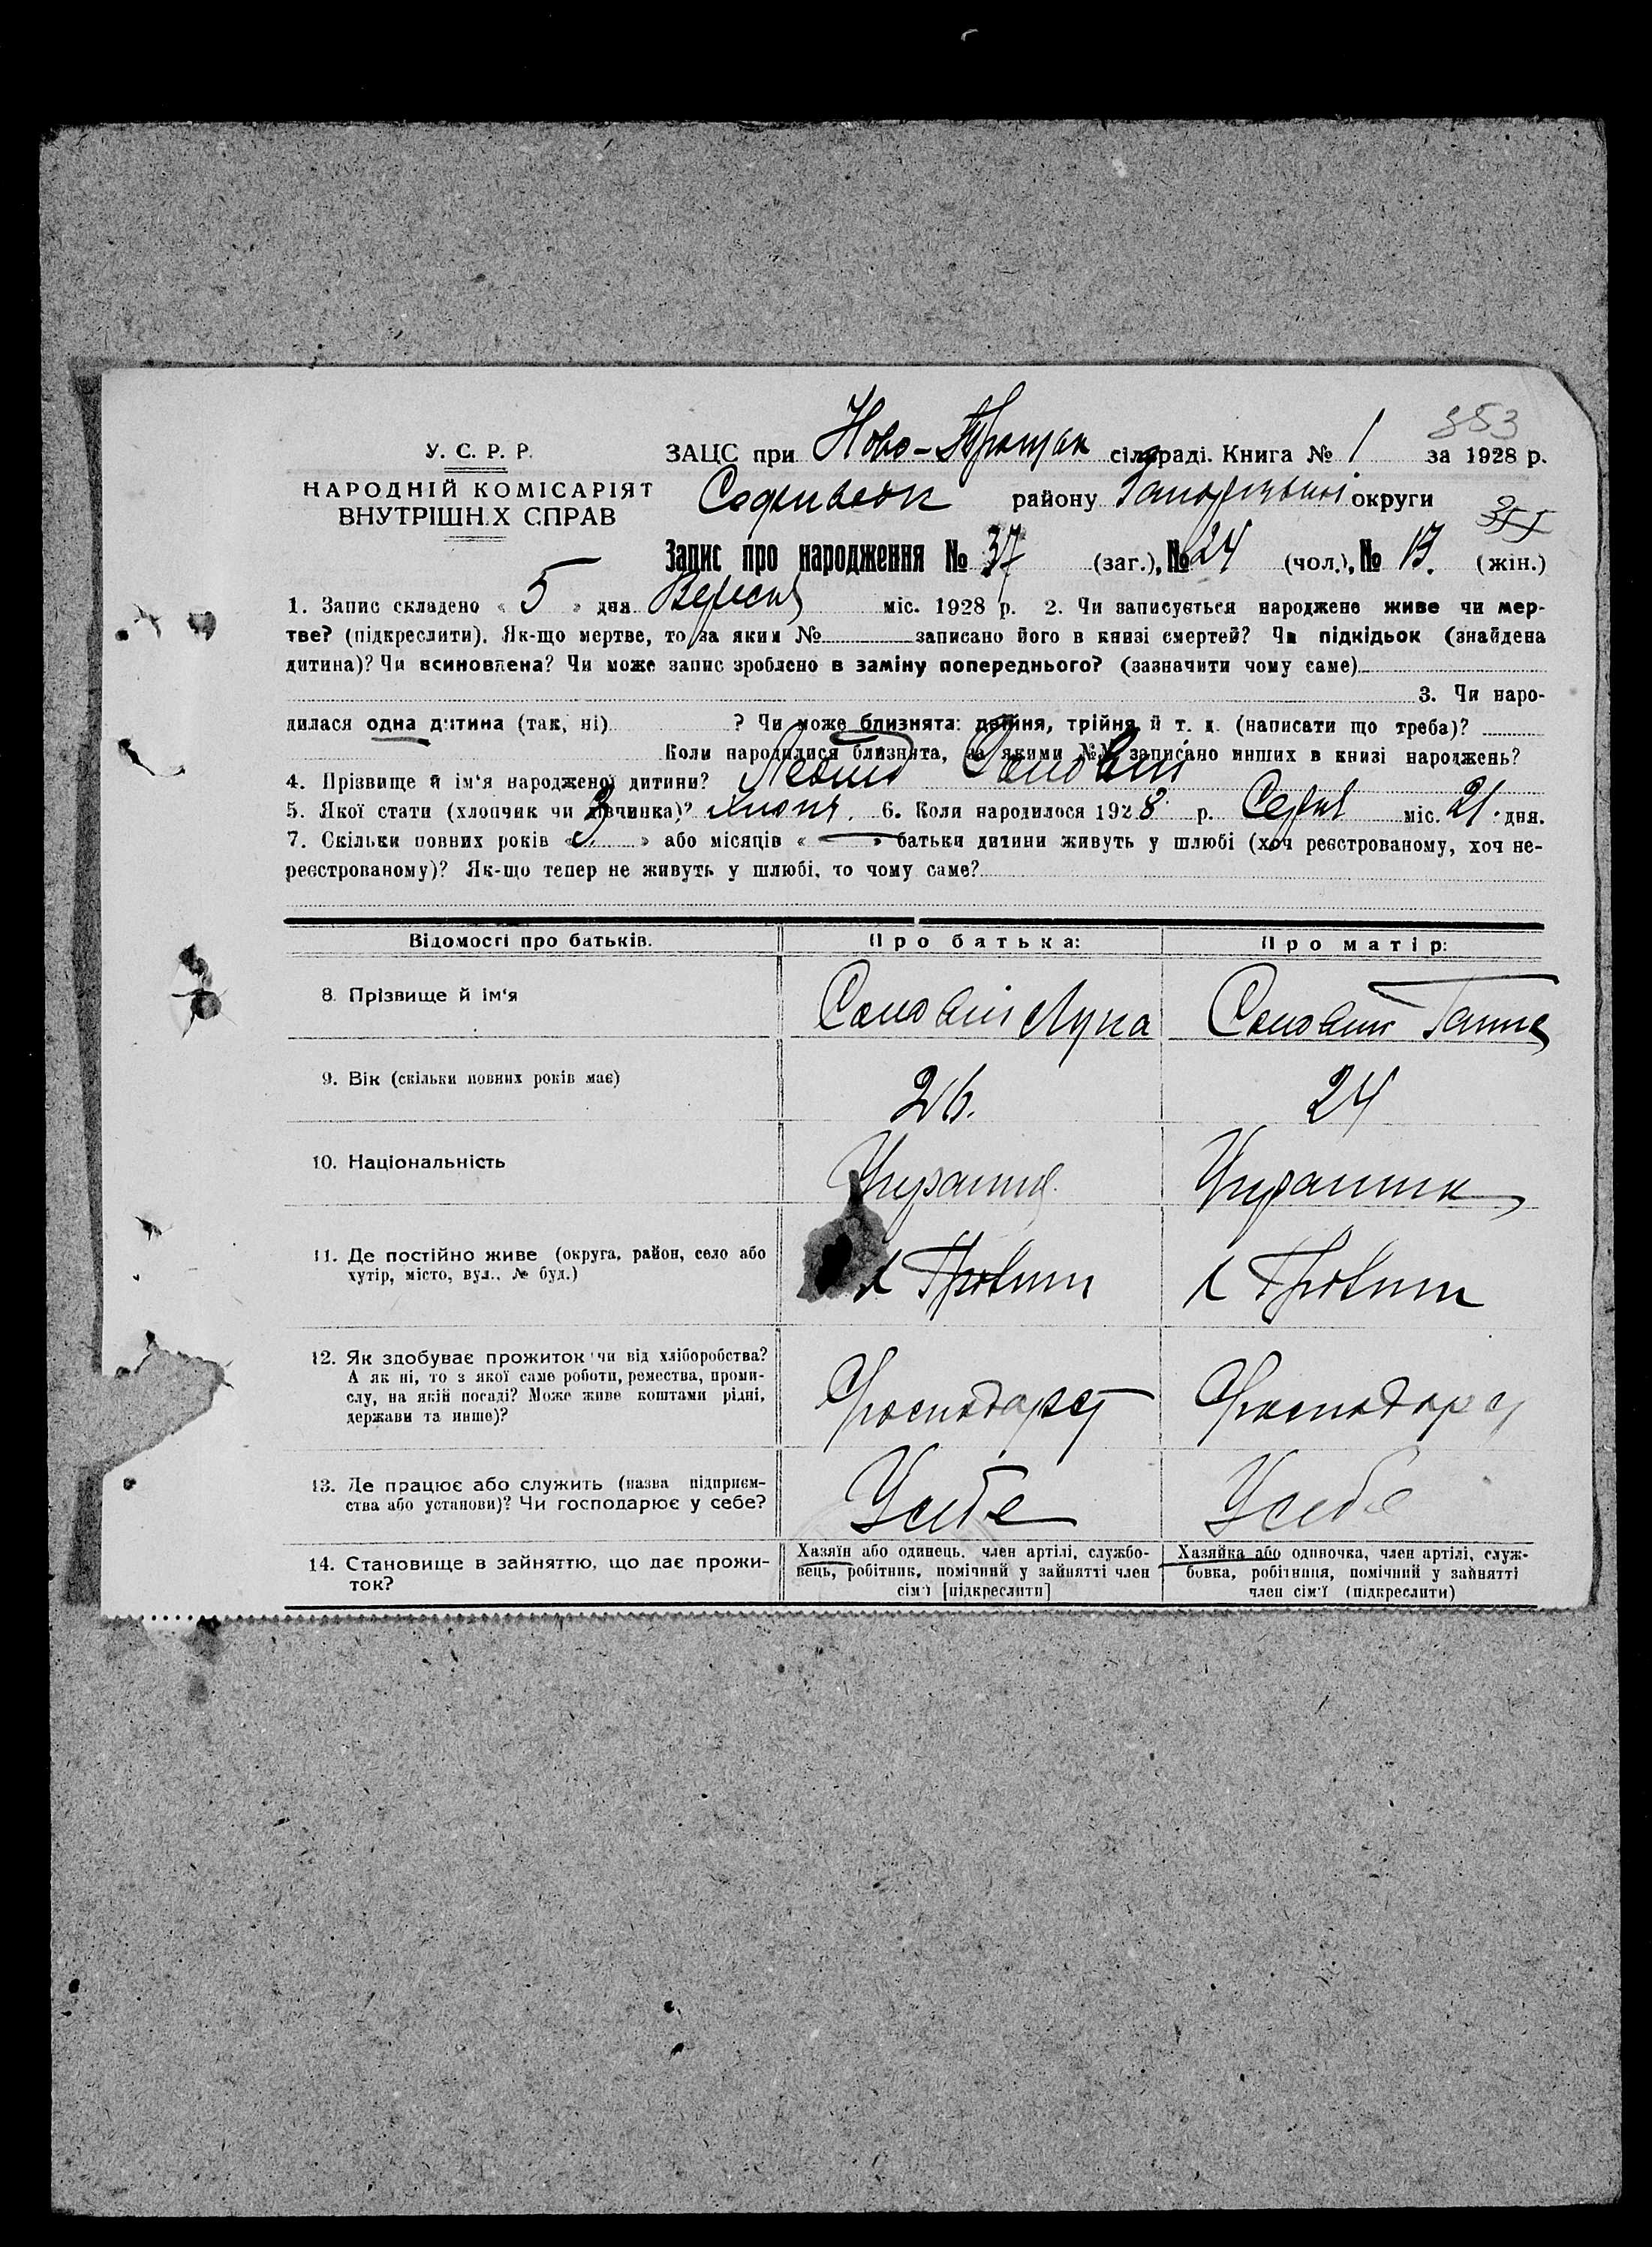 353
У. С. Р. Р.
НАРОДНІЙ КОМІСАРІЯТ
ВНУТРІШНІХ СПРАВ
ЗАЦС при Ново- сільраді. Книга № 1 за 1928 р.
району округи
355
Запис про народження № 37 (заг.), № 24 (чол.), № 13. (жін.)
1. Запис складено « 5 » дня Вересня міс. 1928 р. 2. Чи записується народжене живе чи мер-
тве? (підкреслити). Як-що мертве, то за яким № записано його в книзі смертей? Чи підкідьок (знайдена
дитина)? Чи всиновлена? Чи може запис зроблено в заміну попереднього? (зазначити чому саме)
3. Чи наро-
дилася одна дитина (так, ні) ? Чи може близнята: двійня, трійня й т. д. (написати що треба)?
Коли народилися близнята, за якими №№ записано инших в книзі народжень?
4. Прізвище й ім'я народженої дитини? Соловий
5. Якої стати (хлопчик чи дівчинка)? хлопч. 6. Коли народилося 1928 р. Серпня міс. 21 дня.
7. Скільки повних років « 3 » або місяців « — » батьки дитини живуть у шлюбі (хоч реєстрованому, хоч не-
реєстрованому)? Як-що тепер не живуть у шлюбі, то чому саме?
Відомості про батьків. Про батька: Про матір:
8. Прізвище й ім'я Соловий Лука Соловий Ганна
9. Вік (скільки повних років має) 26. 24
10. Національність
11. Де постійно живе (округа, район, село або
хутір, місто, вул., № буд.)
12. Як здобуває прожиток чи від хліборобства?
А як ні, то з якої саме роботи, ремества, проми-
слу, на якій посаді? Може живе коштами рідні,
держави та инше)?
13. Де працює або служить (назва підприєм-
ства або установи)? Чи господарює у себе? У себе У себе
14. Становище в зайняттю, що дає прожи-
ток?
Хазяїн або одинець, член артілі, службо-
вець, робітник, помічний у зайнятті член
сім'ї [підкреслити]
Хазяйка або одиночка, член артілі, служ-
бовка, робітниця, помічний у зайнятті
член сім'ї (підкреслити)